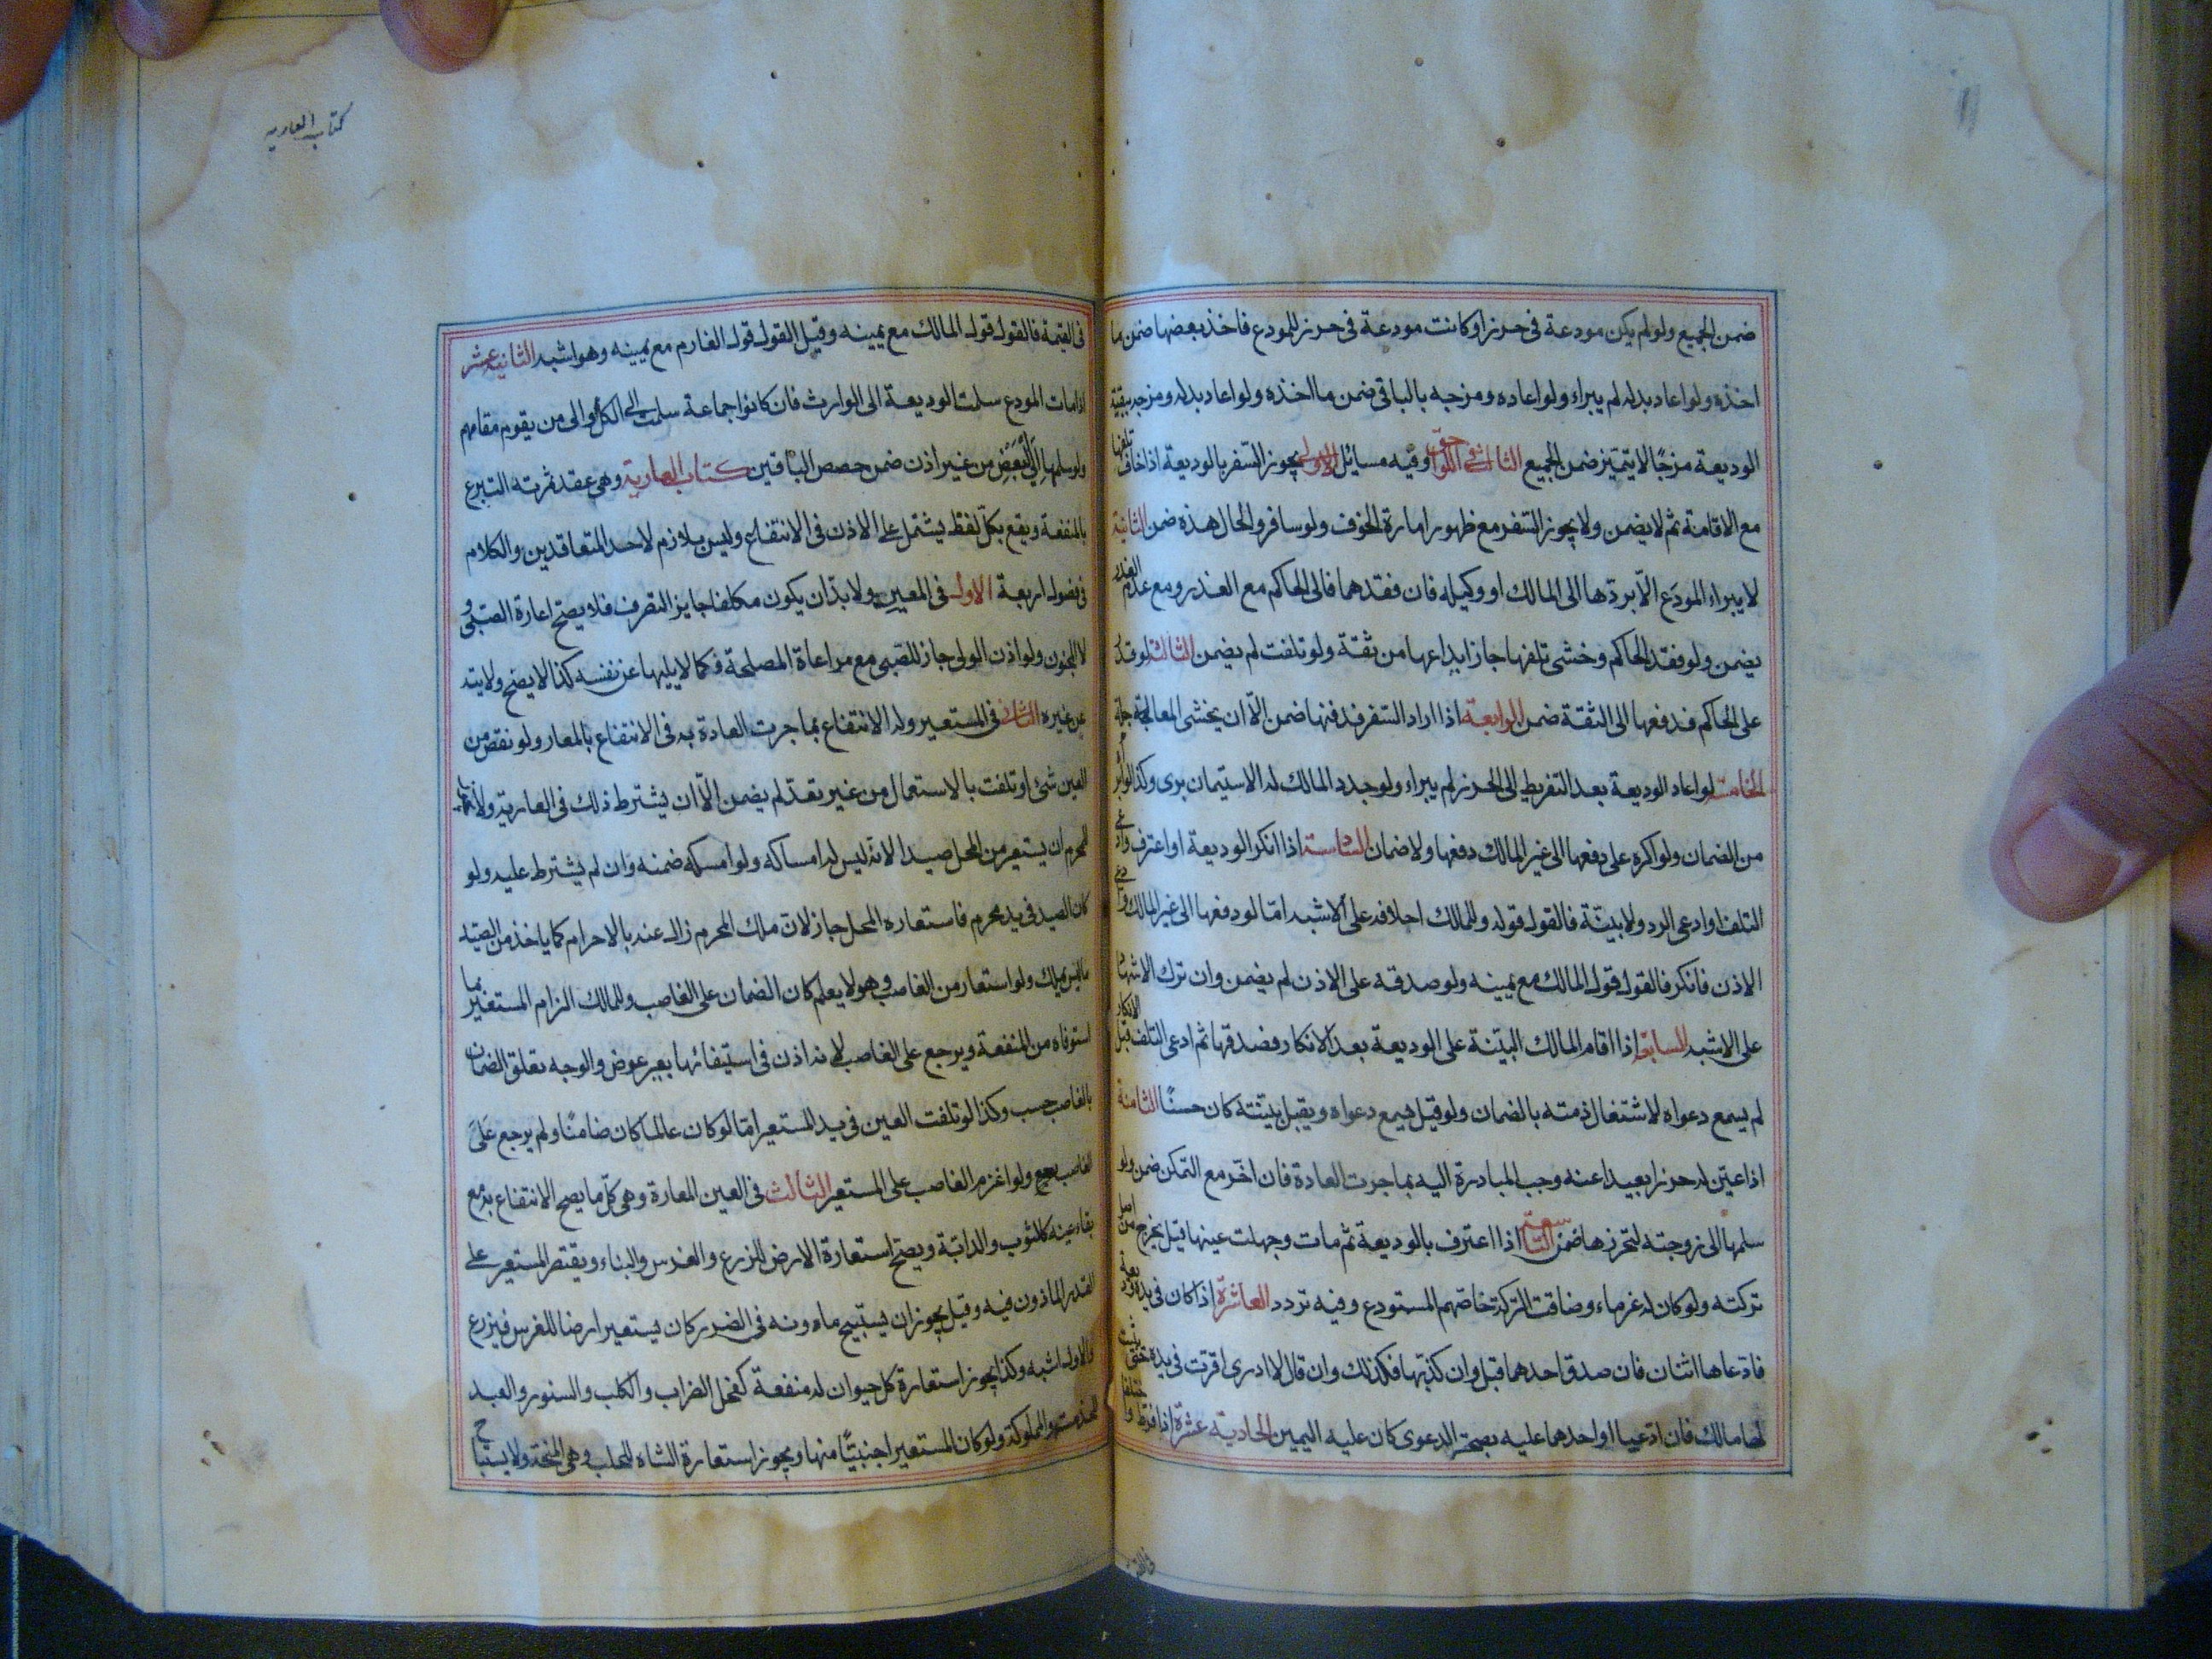 ضمن الجميع ولو لم يكن مودعة في حرز او كانت مودعة في حرز للمودع فاخذ بعضها ضمن ما
اخذه ولو اعاد بدله لم يبراء ولو اعاده ومزجه بالباقي ضمن ما اخذه ولو اعاد بدله ومزجه ببقية
الوديعة مزجًا لا يتميّز ضمن الجميع الثالث في اللواحق وفيه مسائل الاولى يجوز السّفر بالوديعة اذا خاف تلفها
مع الاقامة ثم لا يضمن ولا يجوز السّفر مع ظهور امارة الخوف ولو سافر والحال هذه ضمن الثانية
لا يبراء المودَع الّا بردّها الى المالك او وكيله فان فقدهما فالى الحاكم مع العذر ومع عدم العذر
يضمن ولو فقد الحاكم وخشى تلفها جاز ايداعها من ثقة ولو تلفت لم يضمن الثالثة لو قدر
على الحاكم فدفعها الى الثقة ضمن الرابعة اذا اراد السّفر فدفنها ضمن الّا ان يخشى المعالجة
الخامسة لو اعاد الوديعة بعد التفريط الى الحرز لم يبراء ولو جدد المالك له الاستيمان برى وكذا لو ابراه
من الضمان ولو اكره على دفعها الى غير المالك دفعها ولا ضمان السادسة اذا انكر الوديعة او اعترف وادعى
التلف او ادعى الرد ولا بيّنة فالقول قوله وللمالك احلافه على الاشبه امّا لو دفعها الى غير المالك وادعى
الاذن فانكر فالقول قول المالك مع يمينه ولو صدقه على الاذن لم يضمن وان ترك الاشهاد
على الاشبه السابعة اذا اقام المالك البيّنة على الوديعة بعد الانكار فصدقها ثم ادعى التلف قبل الانكار
لم يسمع دعواه لاشتغال ذمته بالضمان ولو قيل يسمع دعواه ويقبل بيّنته كان حسنًا الثامنة
اذا عيّن له حرزا بعيدا عنه وجب المبادرة اليه بما جرت العادة فان اخّر مع التمكن ضمن ولو
سلمها الى زوجته لتحرزها ضمن التاسعة اذا اعترف بالوديعة ثم مات وجهلت عينها قيل يخرج من اصل
تركته ولو كان له غرماء وضاقت التركة خاصّهم المستودع وفيه تردد العاشرة اذا كان في يده وديعة
فادّعاها اثنان فان صدق احدهما قبل وان كذبهما فكذلك وان قال لا ادرى اقرت في يده حتى يثبت
لها مالك فان ادّعيا او احدهما عليه بصحّة الدعوى كان عليه اليمين الحادية عشرة اذا فرّط واختلفا
كتاب العاريه
في القيمة فالقول قول المالك مع يمينه وقيل القول قول الغارم مع يمينه وهو اشبه الثانية عشر
اذا مات المودع سلمت الوديعة الى الوارث فان كانوا جماعة سلمت الى الكل او الى من يقوم مقامهم
ولو سلمها الى البعض من غير اذن ضمن حصص الباقين كتاب العارية وهي عقد ثمرته التبرع
بالمنفعة ويقع بكلّ لفظ يشتمل على الاذن في الانتفاع وليس بلازم لاحد المتعاقدين والكلام
في فصول اربعة الاول في المعير ولا بدّ ان يكون مكلفا جايز التصرف فلا يصحّ اعارة الصّبى و
لا المجنون ولو اذن الولى جاز للصّبى مع مراعاة المصلحة وكما لا يليها عن نفسه كذا لا يصح ولايته
عن غيره الثانى في المستعير وله الانتفاع بما جرت العادة به في الانتفاع بالمعار ولو نقص من
العين شئ او تلفت بالاستعمال من غير تعدّ لم يضمن الّا ان يشترط ذلك في العارية ولا
للمحرم ان يستعير من المحل صيدا لانّه ليس له امساكه ولو امسكه ضمنه وان لم يشترط عليه ولو
كان الصيد في يد محرم فاستعاره المحل جاز لان ملك المحرم زال عنه بالاحرام كما ياخذ من الصيد
ما ليس بملك ولو استعار من الغاصب وهو لا يعلم كان الضمان على الغاصب وللمالك الزام المستعير بما
استوفاه من المنفعة ويرجع على الغاصب لانه اذن في استيفائها بغير عوض والوجه تعلق الضمان
بالغاصب حسب وكذا لو تلفت العين في يد المستعير امّا لو كان عالما كان ضامنًا ولم يرجع على
الغاصب ولو اغرم الغاصب على المستعير الثالث في العين المعارة وهي كلّ ما يصح الانتفاع به مع
بقاء عينه كالثوب والدابّة ويصحّ استعارة الارض للزرع والغرس والبناء ويقتصر المستعير على
القدر الماذون فيه وقيل يجوز ان يستبيح ما دونه في الضرر كان يستعير ارضا للغرس فيزرع
والاول اشبه وكذا يجوز استعارة كل حيوان له منفعة كفحل الضراب والكلب والسنور والعبد
للخدمة والمملوكة ولو كان المستعير اجنبيًّا منها ويجوز استعارة الشاه للحلب وهي المنحة ولا يستباح